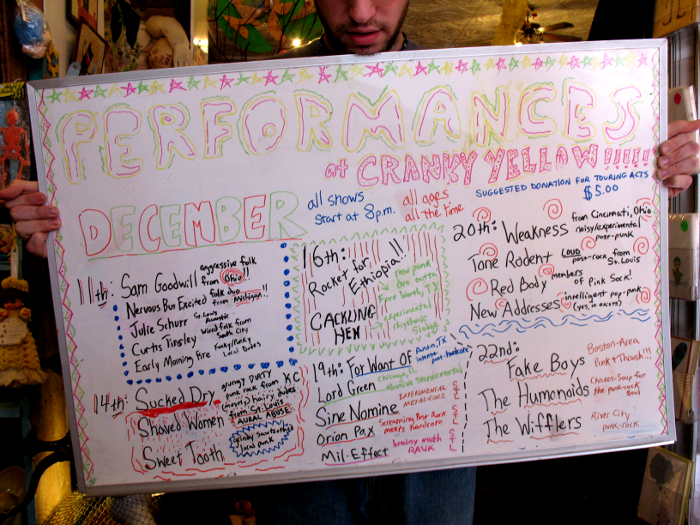 PERFORMANCES
at CRANKY YELLOW!!!!!
SUGGESTED DONATION FOR TOURING ACTS
$5.00
DECEMBER
all shows
start at 8pm.
all ages
all the time.
11th: Sam Goodwill aggressive folk
from Ohio!!
Nervous But Excited folk duo
from Michigan!!
Julie Schurr St. Louis
Acoustic
Curtis Tinsley Weird folk from
South City
Early Morning Fire Funky/Rocky
Local Dudes
14th: Sucked Dry grungy DIRTY
punk rock from K.C.
Shaved Women (mostly) hairy dudes
from St. Louis
AURAL ABUSE
Sweet Tooth
local punk
16th:
Rocket for
Ethiopia!!
raw punk
Fort Worth, TX
CACKLING
HEN
experimental
rhythmic
19th: For Want Of Austin, TX
Lord Green Chicago, IL
Sine Nomine EXPERIMENTAL
METAL-CORE
STL
Orion Pax Screaming Hard Rock
meets Hardcore
STL
Mil-Effect brainy math
RAWK
STL
20th: Weakness from Cincinnati, Ohio
noisy/experimental
post-punk
Tone Rodent LOUD
post-rock from
St. Louis
Red Body members
of Pink Sock!
New Addresses intelligent pop-punk
(yes, it exists)
22nd:
Fake Boys Boston-Area
Punk & Thrash!!!
The Humanoids Chicken-Soup for
the punk-rock
Soul
The Wifflers River City
punk-rock